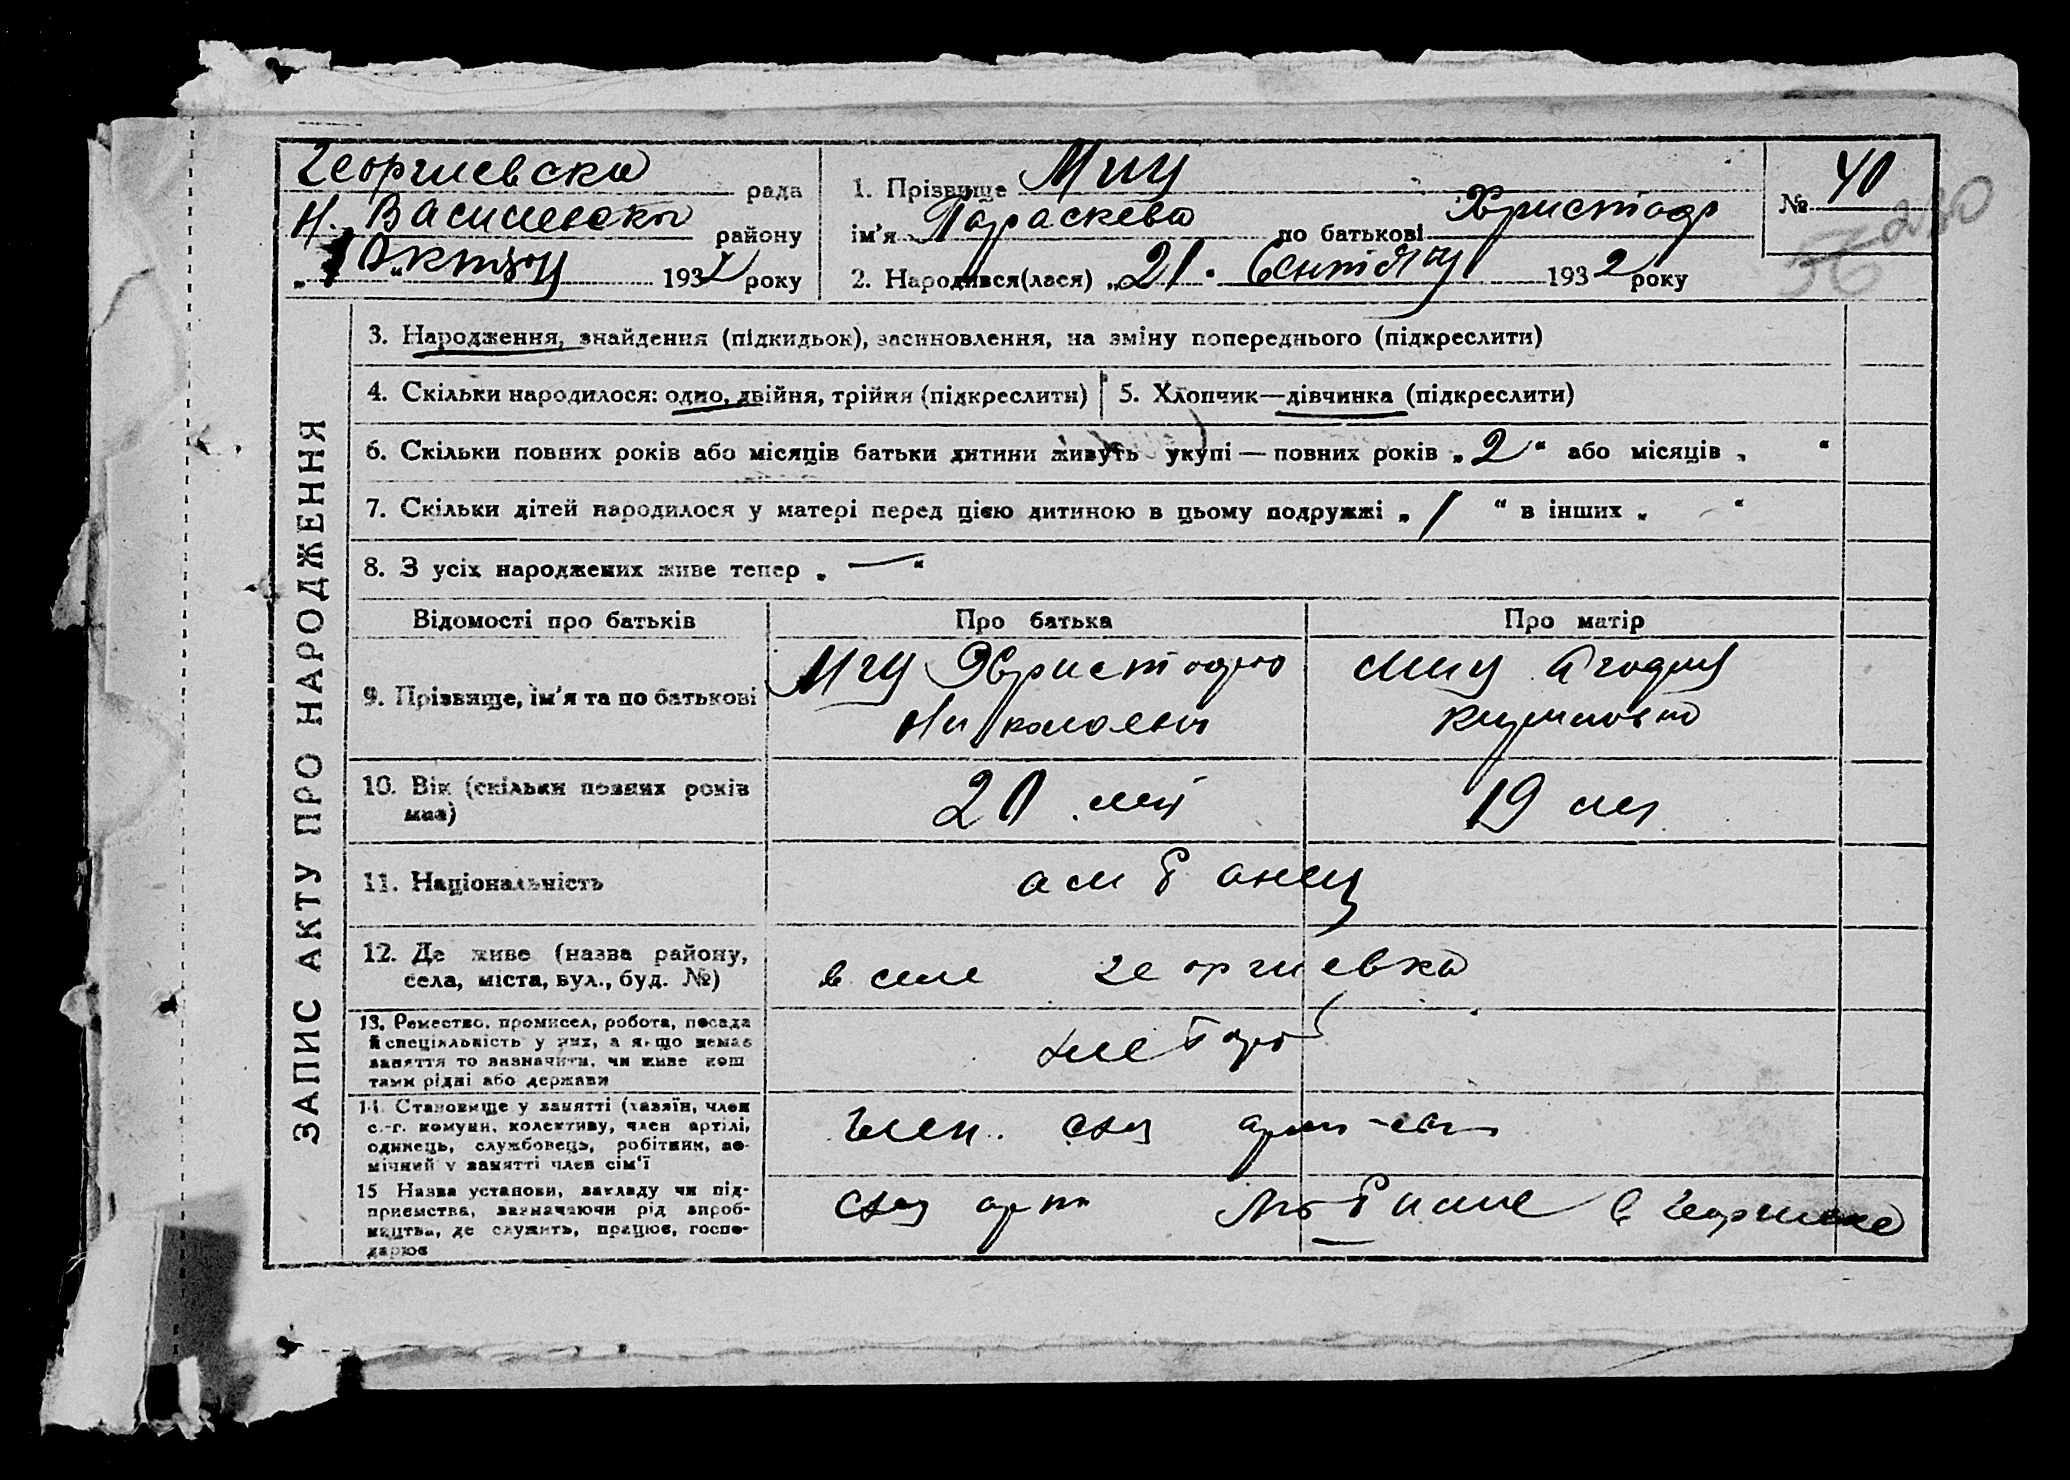 Георгиевска рада
Н. Василевски району
„1" Октяр 1932 року
1. Прізвище Мич
ім'я Параскева по батькові Христофр
2. Народився(лася) „21. Сентябр 1932 року
№ 40
56 280
ЗАПИС АКТУ ПРО НАРОДЖЕННЯ
3. Народження, знайдення (підкидьок), засиновлення, на зміну попереднього (підкреслити)
4. Скільки народилося: одно, двійня, трійня (підкреслити)
5. Хлопчик—дівчинка (підкреслити)
6. Скільки повних років або місяців батьки дитини живуть укупі — повних років „2" або місяців „ "
7. Скільки дітей народилося у матері перед цією дитиною в цьому подружжі „1" в інших „ "
8. З усіх народжених живе тепер „ — "
Відомості про батьків Про батька Про матір
9. Прізвище, ім'я та по батькові
Мич
Николаев
Мич
10. Вік (скільки повних років
має)
20 лет 19 лет
11. Національність
албанец
12. Де живе (назва району,
села, міста, вул., буд. №)
в селе Георгиевка
13. Ремество, промисел, робота, посада
й спеціяльність у них, а якщо немає
заняття то зазначити, чи живе кош
тами рідні або держави
хлебороб
14. Становище у занятті (хазяїн, член
с.-г. комуни, колективу, член артілі,
одинець, службовець, робітник, по-
мічний у занятті член сім'ї
член. схз арт
15 Назва установи, закладу чи під-
приємства, зазначаючи рід вироб-
ництва, де служить, працює, госпо-
дарює
схз арт в Георгиевке